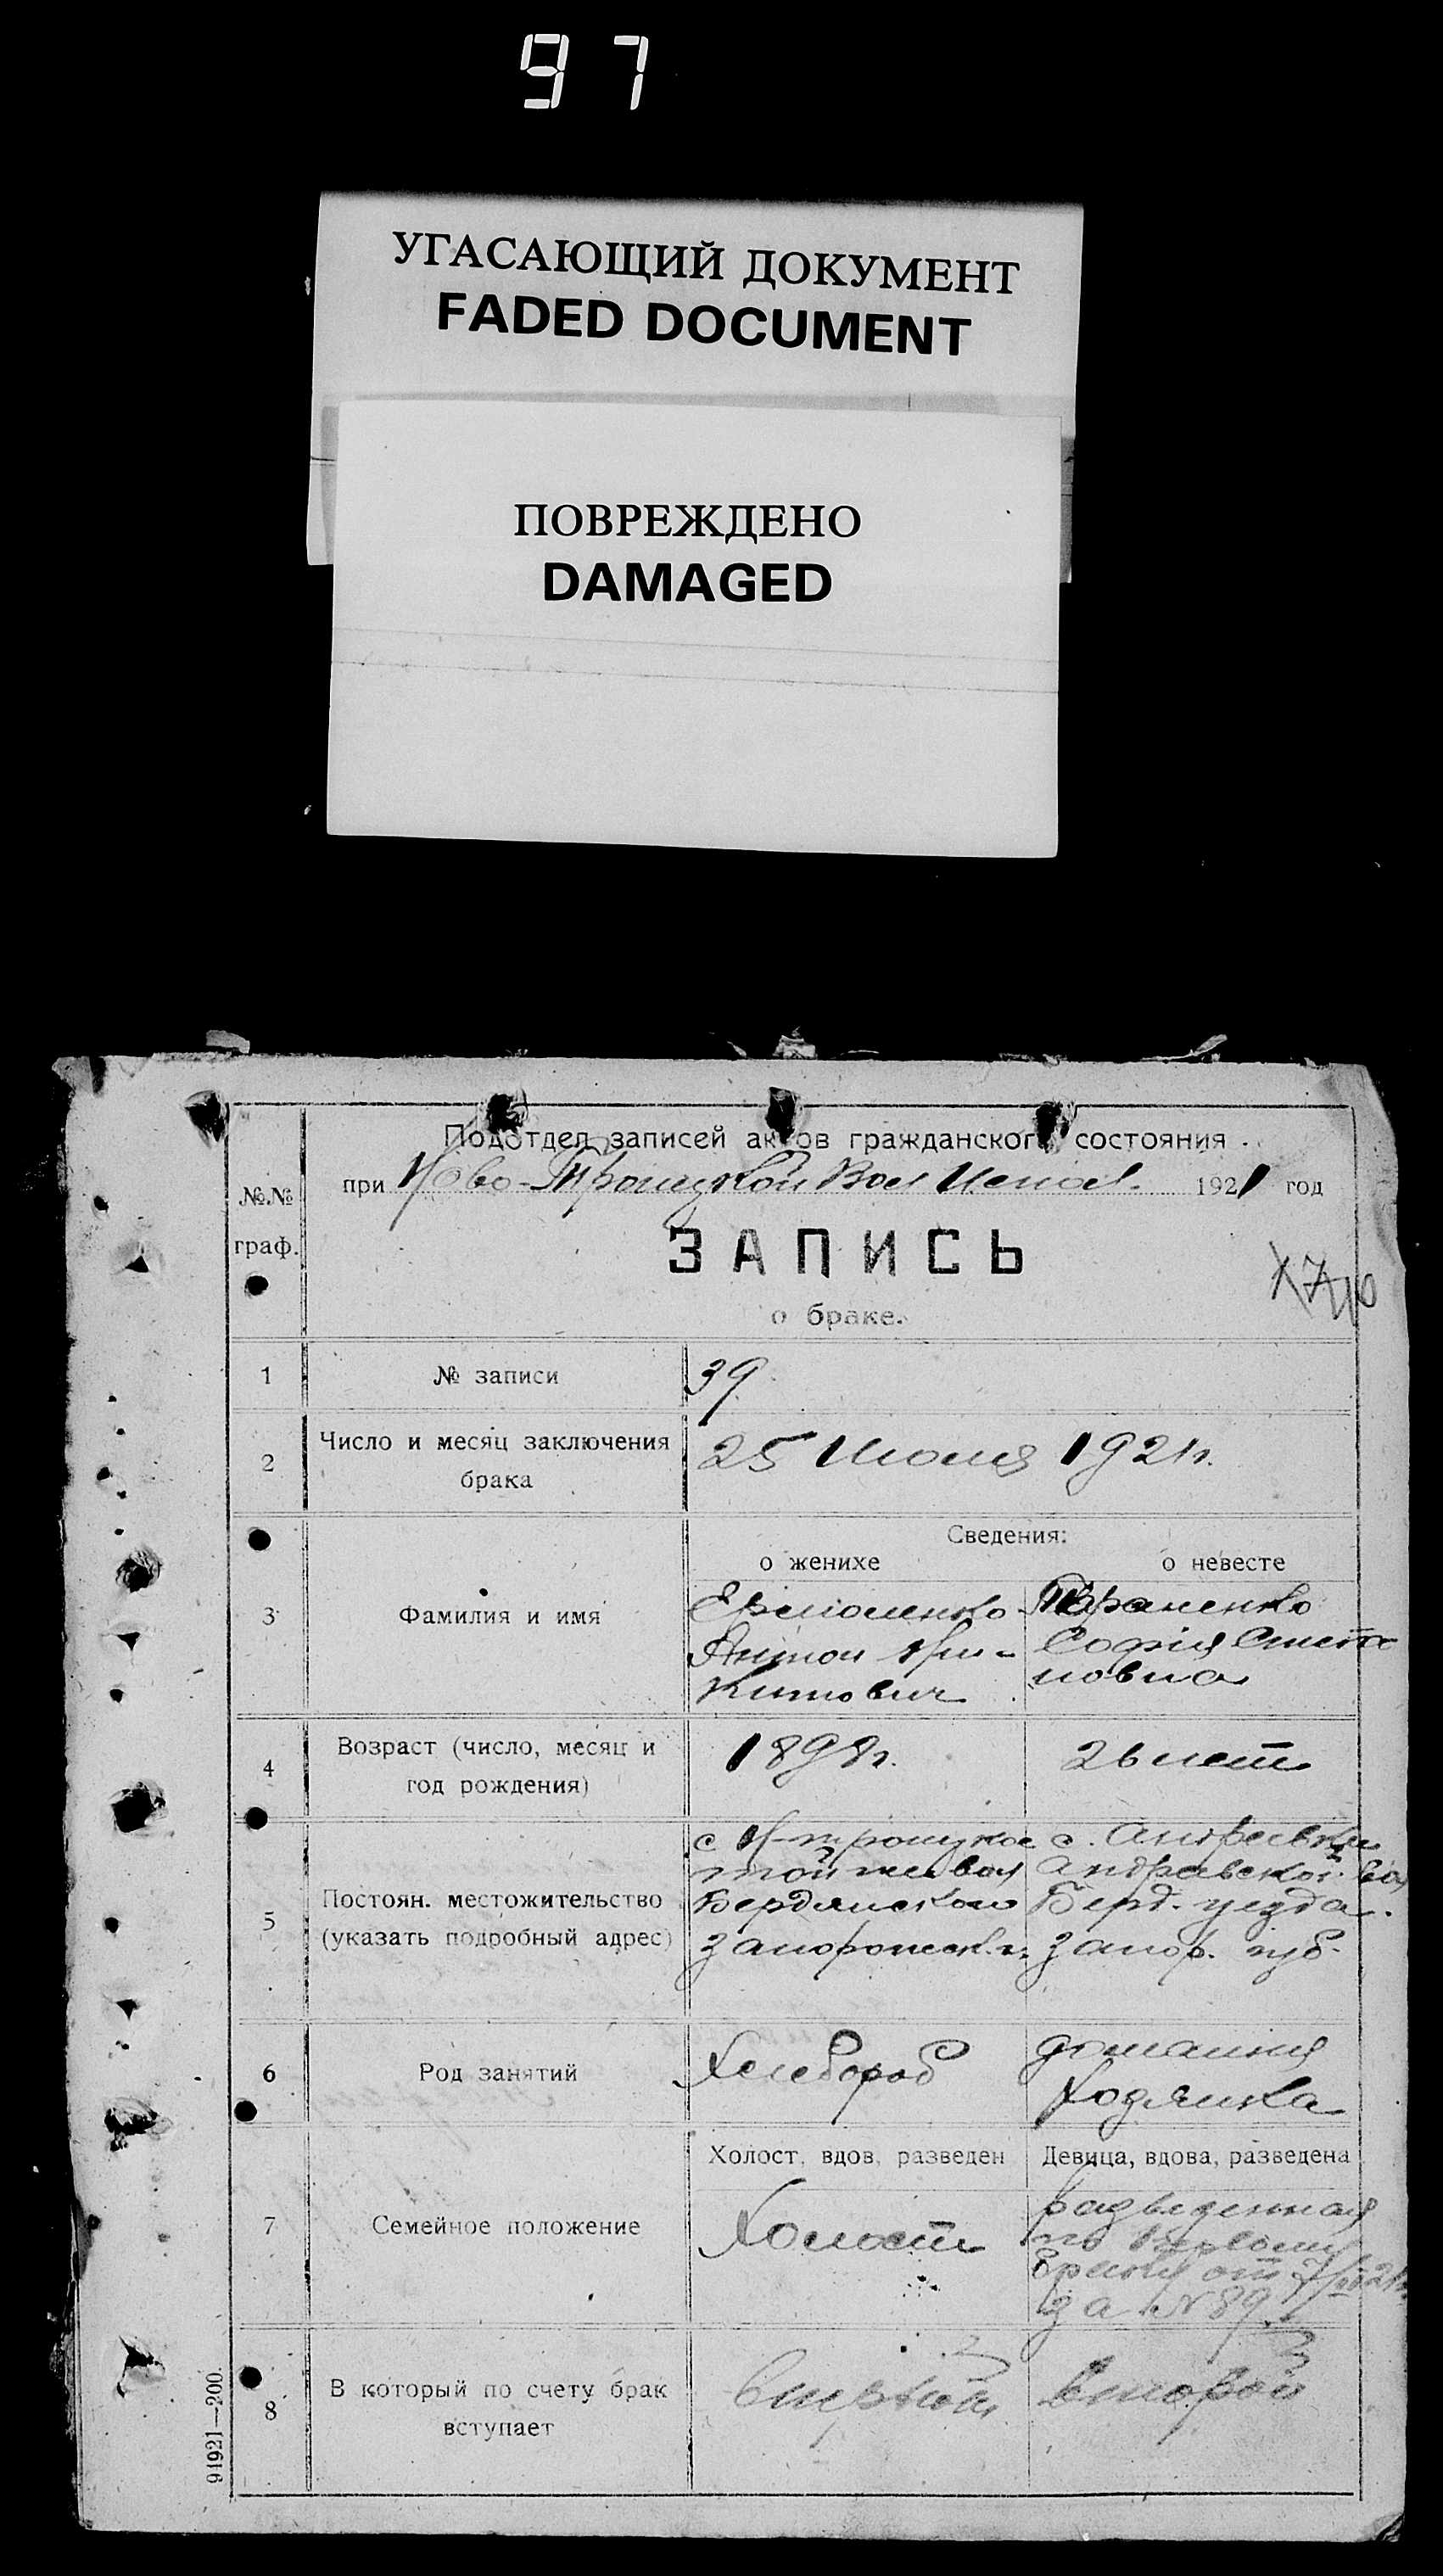 97
УГАСАЮЩИЙ ДОКУМЕНТ
FADED DOCUMENT
ПОВРЕЖДЕНО
DAMAGED
Подотдел записей актов гражданского состояния
при Ново-Троицкой Вол Исполк. 1921 год
№№
граф.
ЗАПИСЬ
о браке.
1 № записи 39
2 Число и месяц заключения
брака
25 Июля 1921г.
Сведения:
о женихе о невесте
3 Фамилия и имя
Ермоленко
Антон
китович
София Степа
новна
4 Возраст (число, месяц и
год рождения)
1898г. 26 лет
5 Постоян. местожительство
(указать подробный адрес)
с Н-троицкое
той же вол
Бердянского
Запорожск. г.
с. Андреевки
Андреевской вол
Берд. уезда.
Запор. губ.
6 Род занятий
Хлебороб
домашняя
хозяйка
7 Семейное положение
Холост, вдов, разведен Девица, вдова, разведена
Холост
разведенная
по первому
браку от
за № 89
8 В который по счету брак
вступает
второй
91921—200.